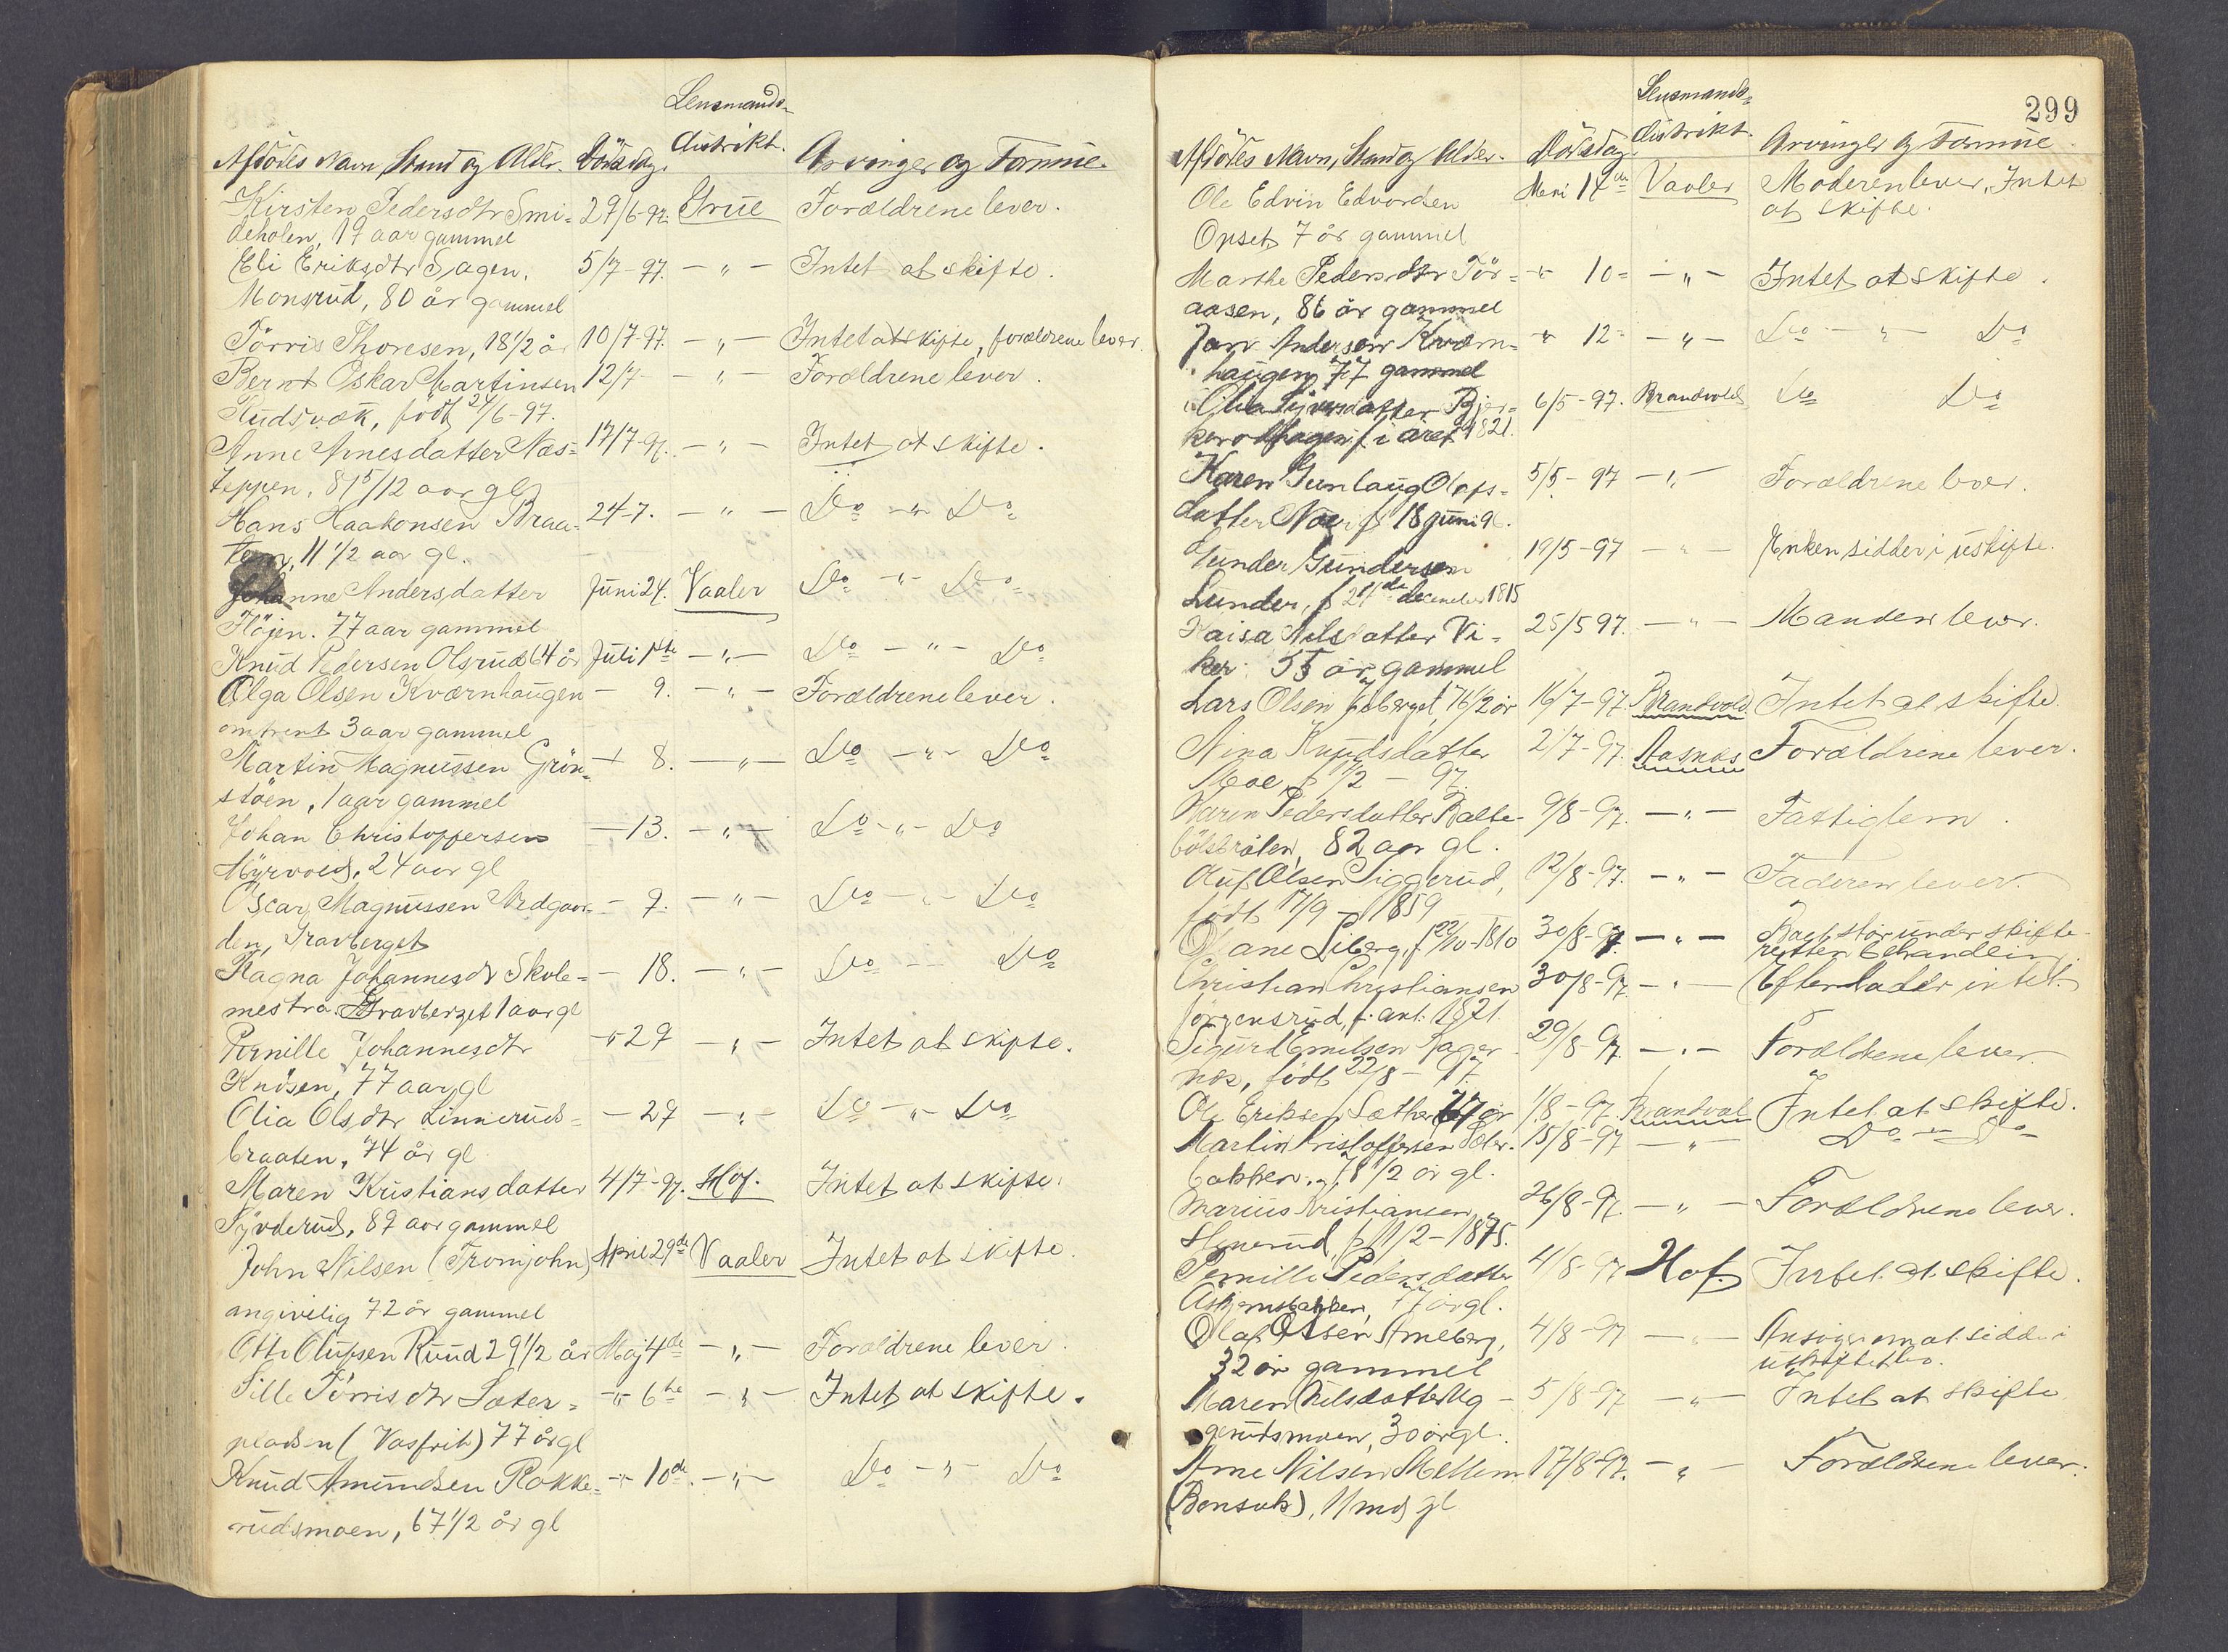 Lensmands-
distrikt.
Afdödes Navn, Stand og Alder. Dödsdag. Arvinger og Formue.
Kirsten Pedersdtr Smi- 29/6-97. Grue Forældrene lever.
deholen, 19 aar gammel
Eli Eriksdtr Sagen, 5/7-97. -"- Intet at skifte.
Monsrud, 80 år gammel
Törris Thoresen, 18 1/2 år 10/7-97. -"- Intet at skifte, forældrene lever.
Bernt Oskar Martinsen 12/7- -"- Forældrene lever.
Rudsvæk, födt 24/6-97.
Anne Arnesdatter Næs- 17/7-97. -"- Intet at skifte.
teppen, 81 5/12 aar gl
Hans Haakonsen Braa- 24-7. -"- Do -"- Do
ten, 11 1/2 aar gl.
Johanne Andersdatter Juni 24. Vaaler Do -"- Do
Flöjen. 77 aar gammel
Knud Pedersen Olsrud 64 år Juli 1ste -"- Do -"- Do
Olga Olsen Kværnhaugen - 9. -"- Forældrene lever.
omtrent 3 aar gammel
Martin Magnussen Grön- -"- 8. -"- Do -"- Do
støen, 1 aar gammel
Johan Christoffersen - 13. -"- Do -"- Do
Myrvold, 24 aar gl
Oscar Magnussen Nordgaar- - 7. -"- Do -"- Do
den, Gravberget
Ragna Johannesdtr Skole- - 18. -"- Do -"- Do
mestra Gravberget 1 aar gl
Pernille Johannesdtr -"- 29 -"- Intet at skifte.
Knösen, 77 aar gl
Olia Olsdtr Linnerud- - 27 -"- Do -"- Do
braaten, 74 år gl
Maren Kristiansdatter 4/7-97. Hof. Intet at skifte.
Tyvderud, 89 aar gammel
John Nilsen (Tromjohn) April 29de Vaaler Intet at skifte.
angivelig 72 år gammel
Otto Olufsen Ruud 29 1/2 år Maj 4de -"- Forældrene lever.
Sille Törrisdtr Sæter- -"- 6te -"- Intet at skifte.
pladsen (Vasfrit) 77 år gl
Knud Amundsen Rokke- -"- 10de -"- Do -"- Do
rudsmoen, 67 1/2 år gl
299
Lensmands-
distrikt.
Afdödes Navn, Stand og Alder. Dödsdag. Arvinger og Formue.
Ole Edvin Edvardsen Mai 14de Vaaler Moderen lever, Intet
at skifte.
Opset 7 år gammel
Marthe Pedersdtr Tör- -"- 10- -"- Intet at skifte.
aasen, 86 år gammel
Jan Andersen Kværn- -"- 12- -"- Do -"- Do
haugen 77 gammel
Olia Syversdatter Bjer- 6/5-97. Brandvold Do Do
kerodhagen f i året 1821.
Karen Gunlaug Olafs- 5/5-97 -"- Forældrene lever.
datter Noer f 18 juni 96.
Gunder Gundersen 19/5-97 -"- Enken sidder i uskifte.
Lunder, f 24de december 1815
Kaisa Nilsdatter Vi- 25/5 97. -"- Manden lever.
ker 55 år gammel
Lars Olsen 76 1/2 år 16/7-97. Brandvold Intet at skifte.
Nina Knudsdatter 21/7-97. Aasnæs Forældrene lever.
Moe, f 11/2-97.
Karen Pedersdatter Balte- 9/8-97. -"- Fattiglem.
bölsbråten, 82 aar gl.
Oluf Olsen Siggerud, 12/8-97. -"- Faderen lever.
födt 17/9-1859
Oliane Liberg, f 22/10-1810 30/8-97. -"- Boet står under skifte-
rettens behandling.
Christian Christiansen 30/8-97. -"- Efterlader intet.
Jörgensrud, f. ant. 1821.
Sigurd Emilsen Hager- 29/8-97. -"- Forældrene lever.
næs, födt 22/8-97.
Ole Eriksen Sæther 67 år 1/8-97. Brandval Intet at skifte.
Martin Kristoffersen Sæter- 15/8-97 -"- Do -"- Do
bakken, 78 1/2 år gl.
Marius Kristiansen 26/8-97. -"- Forældrene lever.
f 11/2-1875.
Pernille Pedersdatter 4/8-97 Hof. Intet at skifte.
Askjernsbakken, 77 år gl.
Olaf Olsen Arneberg, 4/8-97 -"- Ansöger om at sidde i
32 år gammel uskiftet bo.
Maren Nilsdatter Ug- 5/8-97 -"- Intet at skifte
gerudsmoen, 30 år gl.
Arne Nilsen Mellem 17/8-97. -"- Forældrene lever.
(Bensvk), 11 md gl